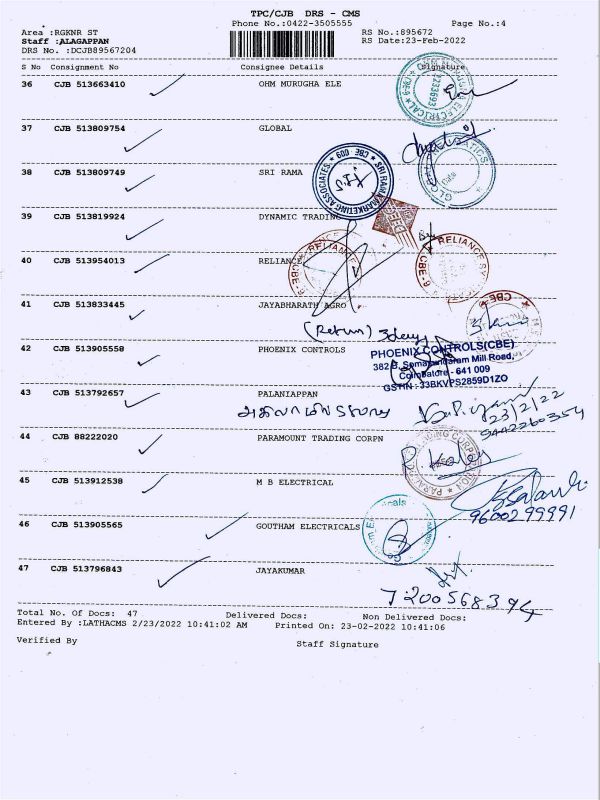 TPC/CJB DRS - CMS
Phone No.:0422-3505555
Page No.:4
Area :RGKNR ST
RS No.:895672
Staff :ALAGAPPAN
RS Date:23-Feb-2022
DRS No. :DCJB89567204
S No Consignment No Consignee Details Signature
36 CJB 513663410 OHM MURUGHA ELE
37 CJB 513809754 GLOBAL
38 CJB 513809749 SRI RAMA
SRI RAM MARKETING ASSOCIATES * CBE - 009 *
39 CJB 513819924 DYNAMIC TRADING
40 CJB 513954013 RELIANCE
RELIANCE
CBE-6
41 CJB 513833445 JAYABHARATH AGRO
CBE
(Return) 3 days
42 CJB 513905558 PHOENIX CONTROLS
PHOENIX CONTROLS(CBE)
Mill Road,
Coimbatore - 641 009
GSTIN : 33BKVPS2859D1ZO
43 CJB 513792657 PALANIAPPAN
23/2/22
9442260354
44 CJB 88222020 PARAMOUNT TRADING CORPN
45 CJB 513912538 M B ELECTRICAL
9600299991
46 CJB 513905565 GOUTHAM ELECTRICALS
47 CJB 513796843 JAYAKUMAR
7200568394
Total No. Of Docs: 47 Delivered Docs: Non Delivered Docs:
Entered By :LATHACMS 2/23/2022 10:41:02 AM Printed On: 23-02-2022 10:41:06
Verified By Staff Signature